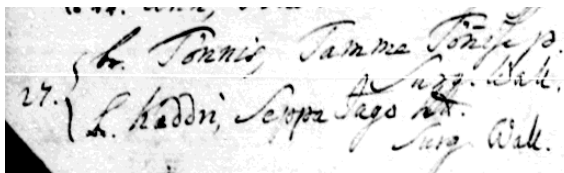 br. Tönnis, Tamme Tönisse p.
Surg. Wall.
27.
br. Kaddri, Seppa Jago tüt.
Surg. Wall.